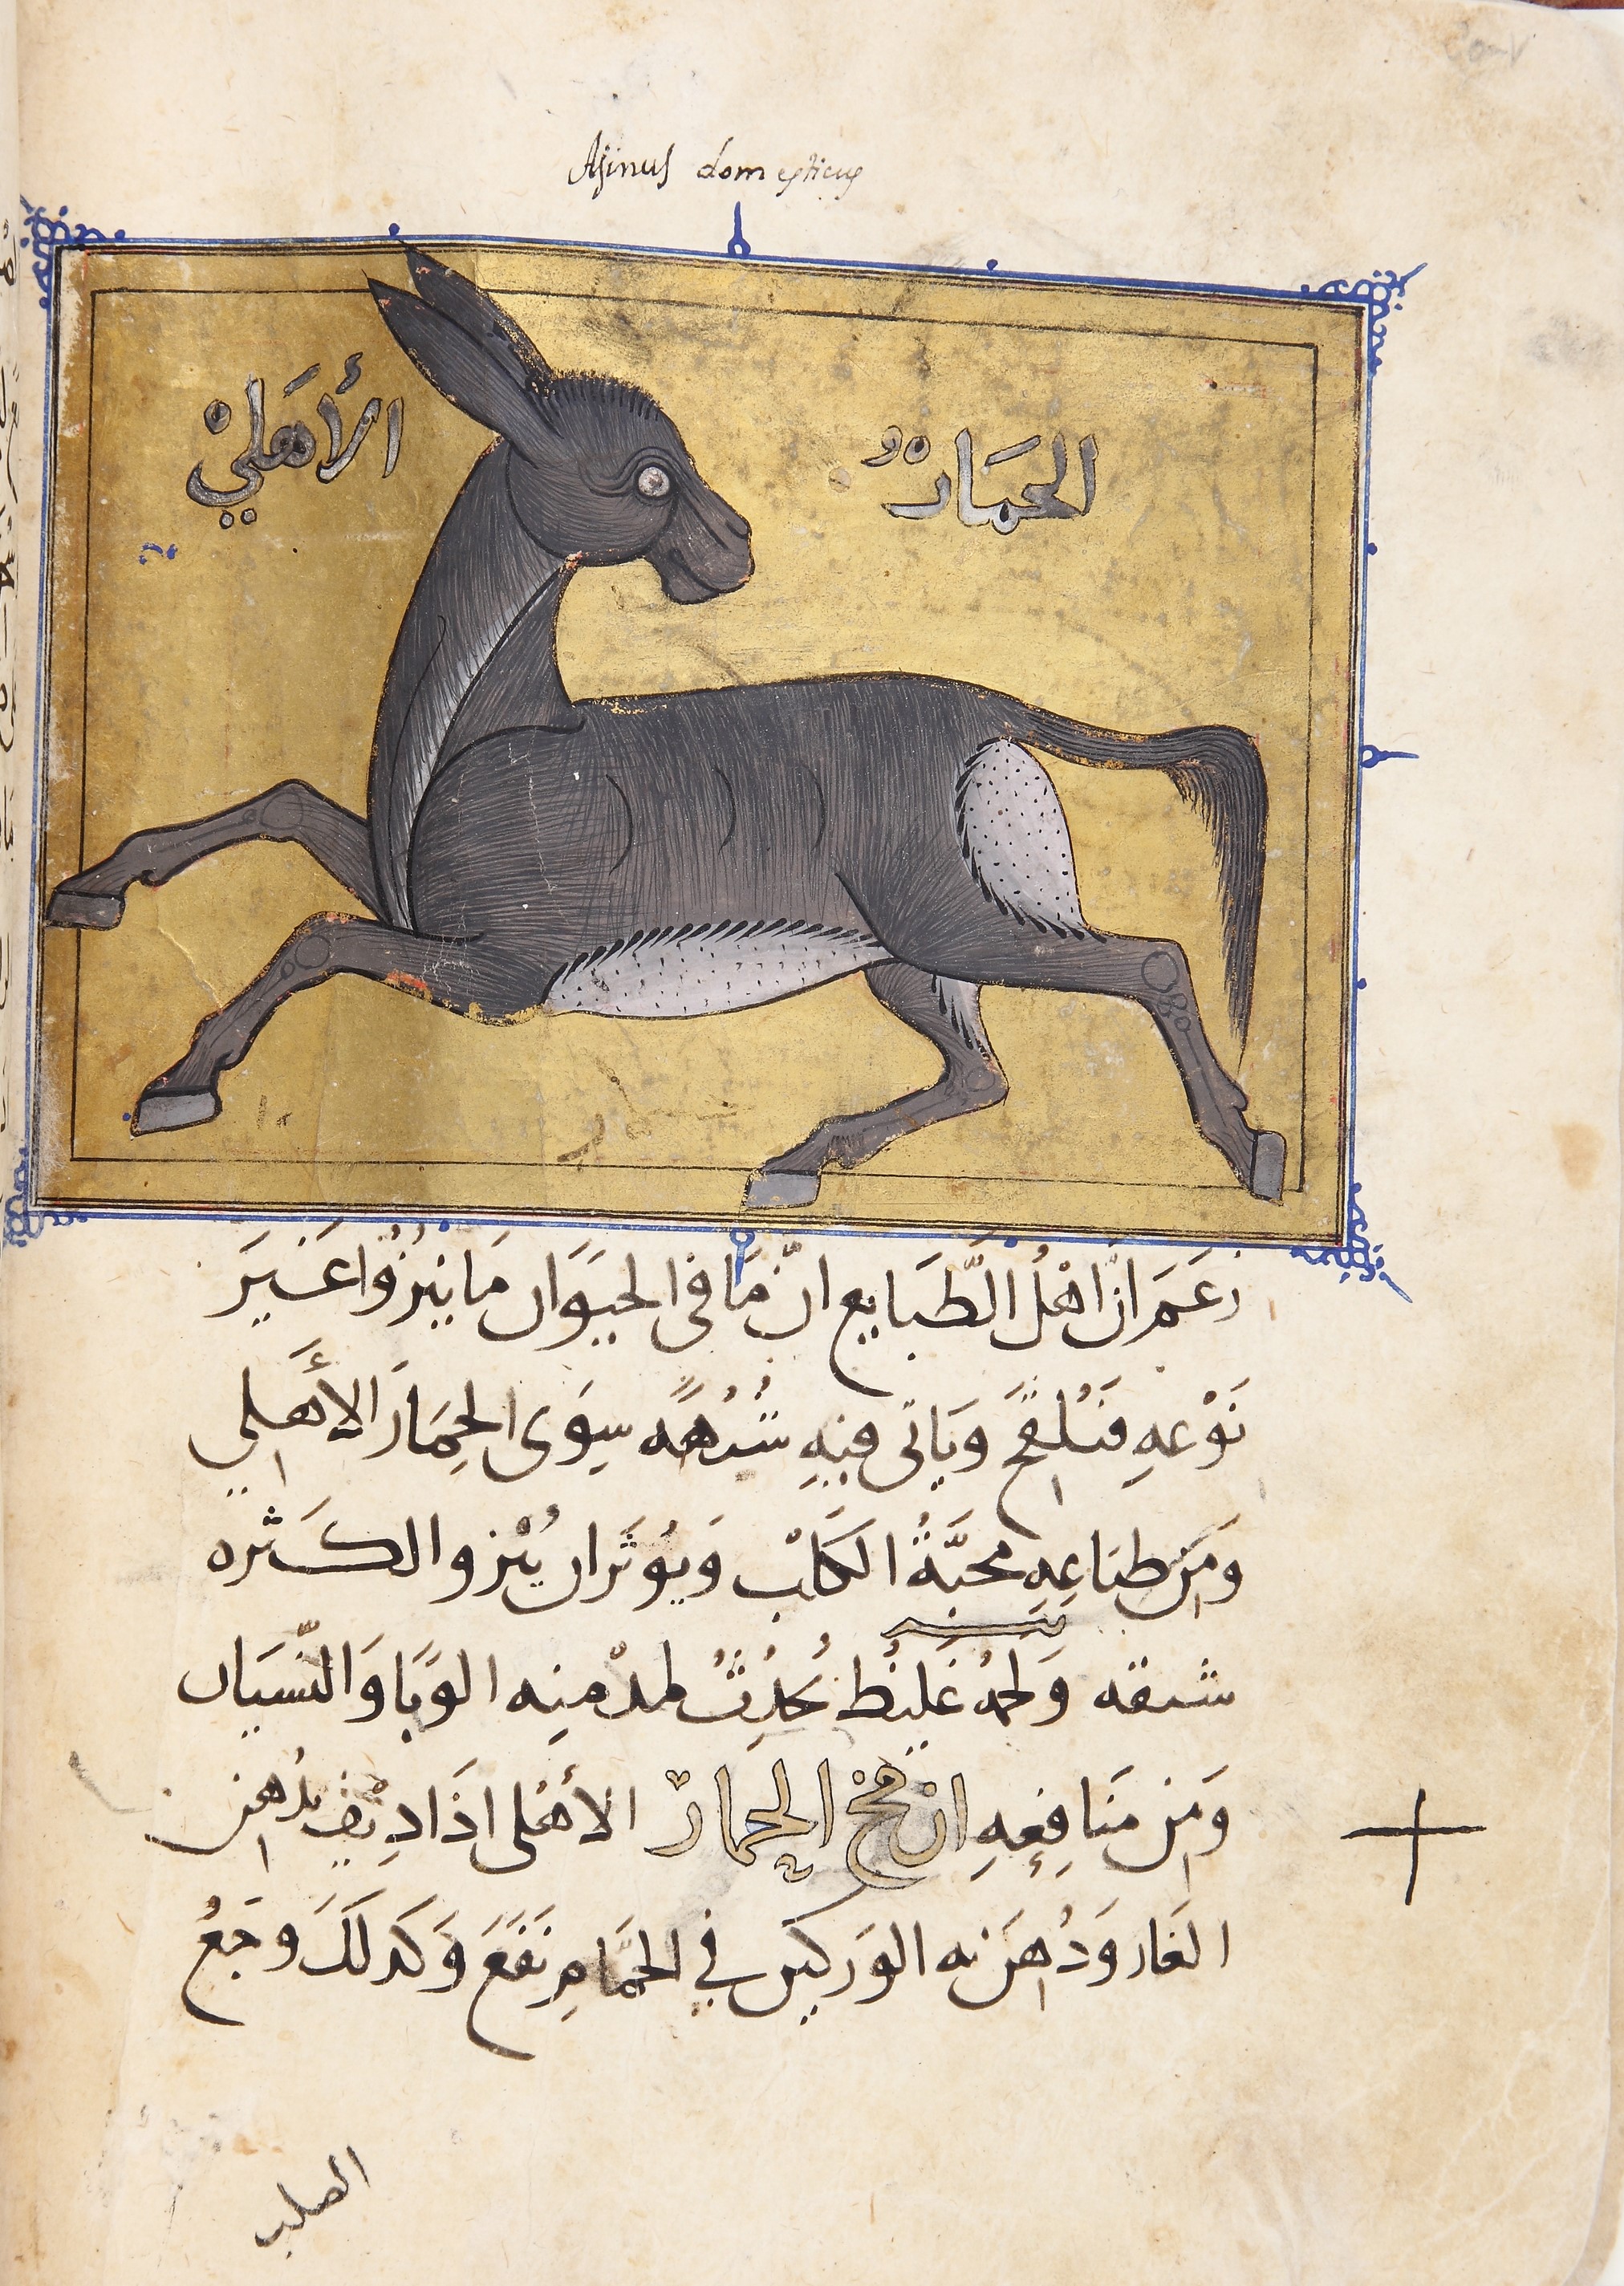 Asinus domesticus
الحمَارُ الأَهَليْ
زعَمَ انَّ اهْلُ الطَّبَايع انّ مَا فى الحيَوَان مَا ينزُوا عَـَـيرَ
نَوْعهِ فتلقحَ وَيَاتى فيهِ شبهًه سِوَى الحِمَارَ الأَهَلي
ومَن طبَاعِهِ محبَّةُ الكَلبْ وَيوُثَران يُنْزوا لكَـثره
شبقه وَلحمُهُ غَليظ يُحْدِثُ لمدْمنِه الوَبَا وَالنّسيَان
وَمن مَنَافِعِهِ ان مخ الحِمارْ الأهْلى اذَا دِيْف بدُهن
الغَار وَدُهنَ به الوَركين في الحمَّامِ نَفَعَ وَكذلكَ وَجَعُ
الصلب